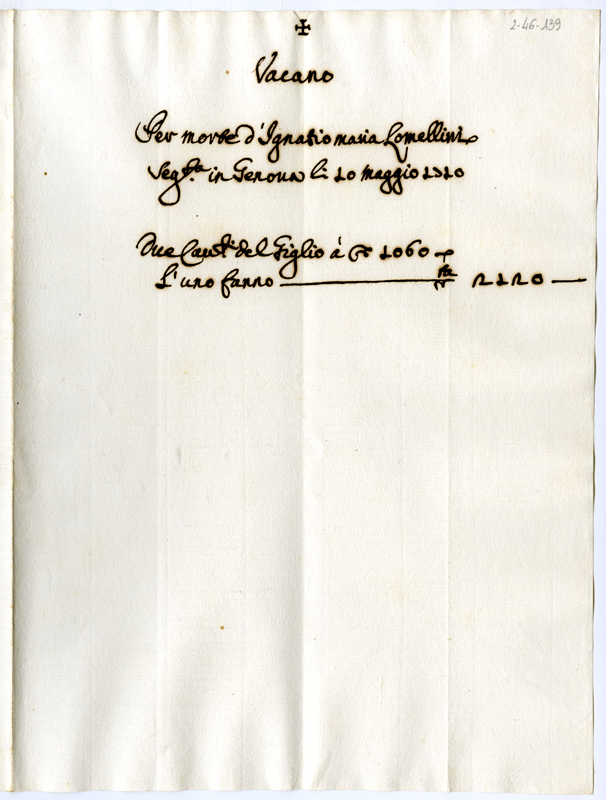 ✠
2-46-139
Vacano
Per morte d'Ignatio maria Lomellini
Seg.ta in Genova li 10 maggio 1710
Due Caual.ti del Giglio à 1060
L'uno fanno 2120